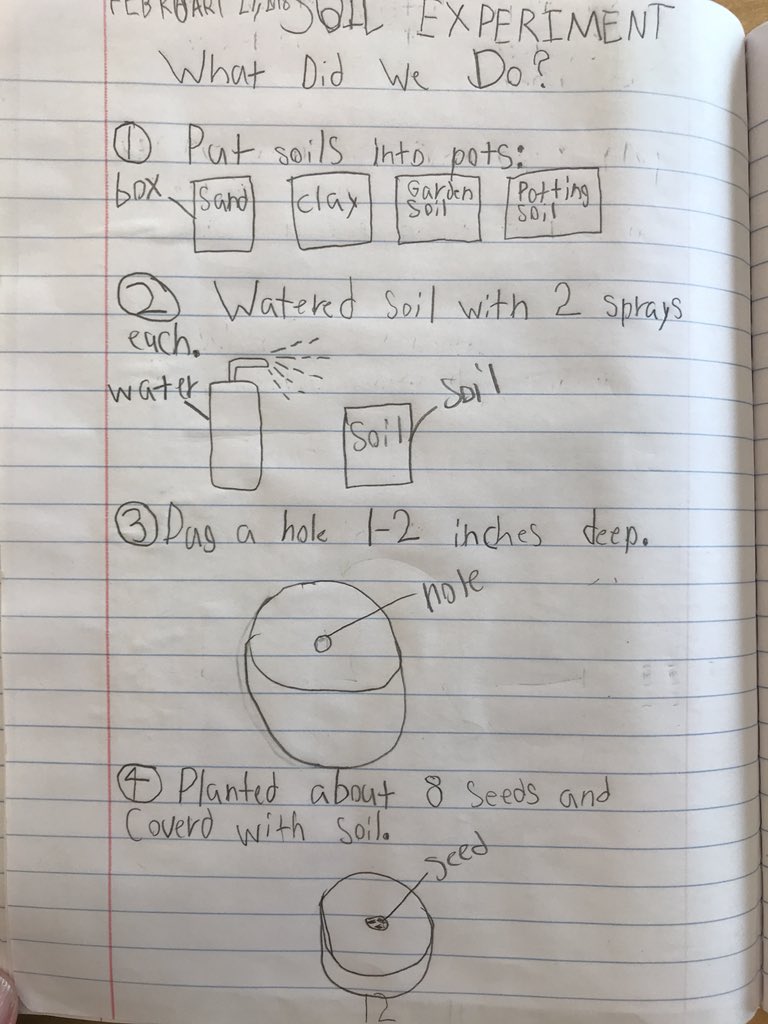 SOIL EXPERIMENT
What Did We Do?
① Put soils into pots:
box Sand Clay Garden Potting
soil soil
② Watered soil with 2 sprays
each.
water
soil
Soil
③ Dug a hole 1-2 inches deep.
hole
④ Planted about 8 seeds and
Coverd with soil.
seed
12